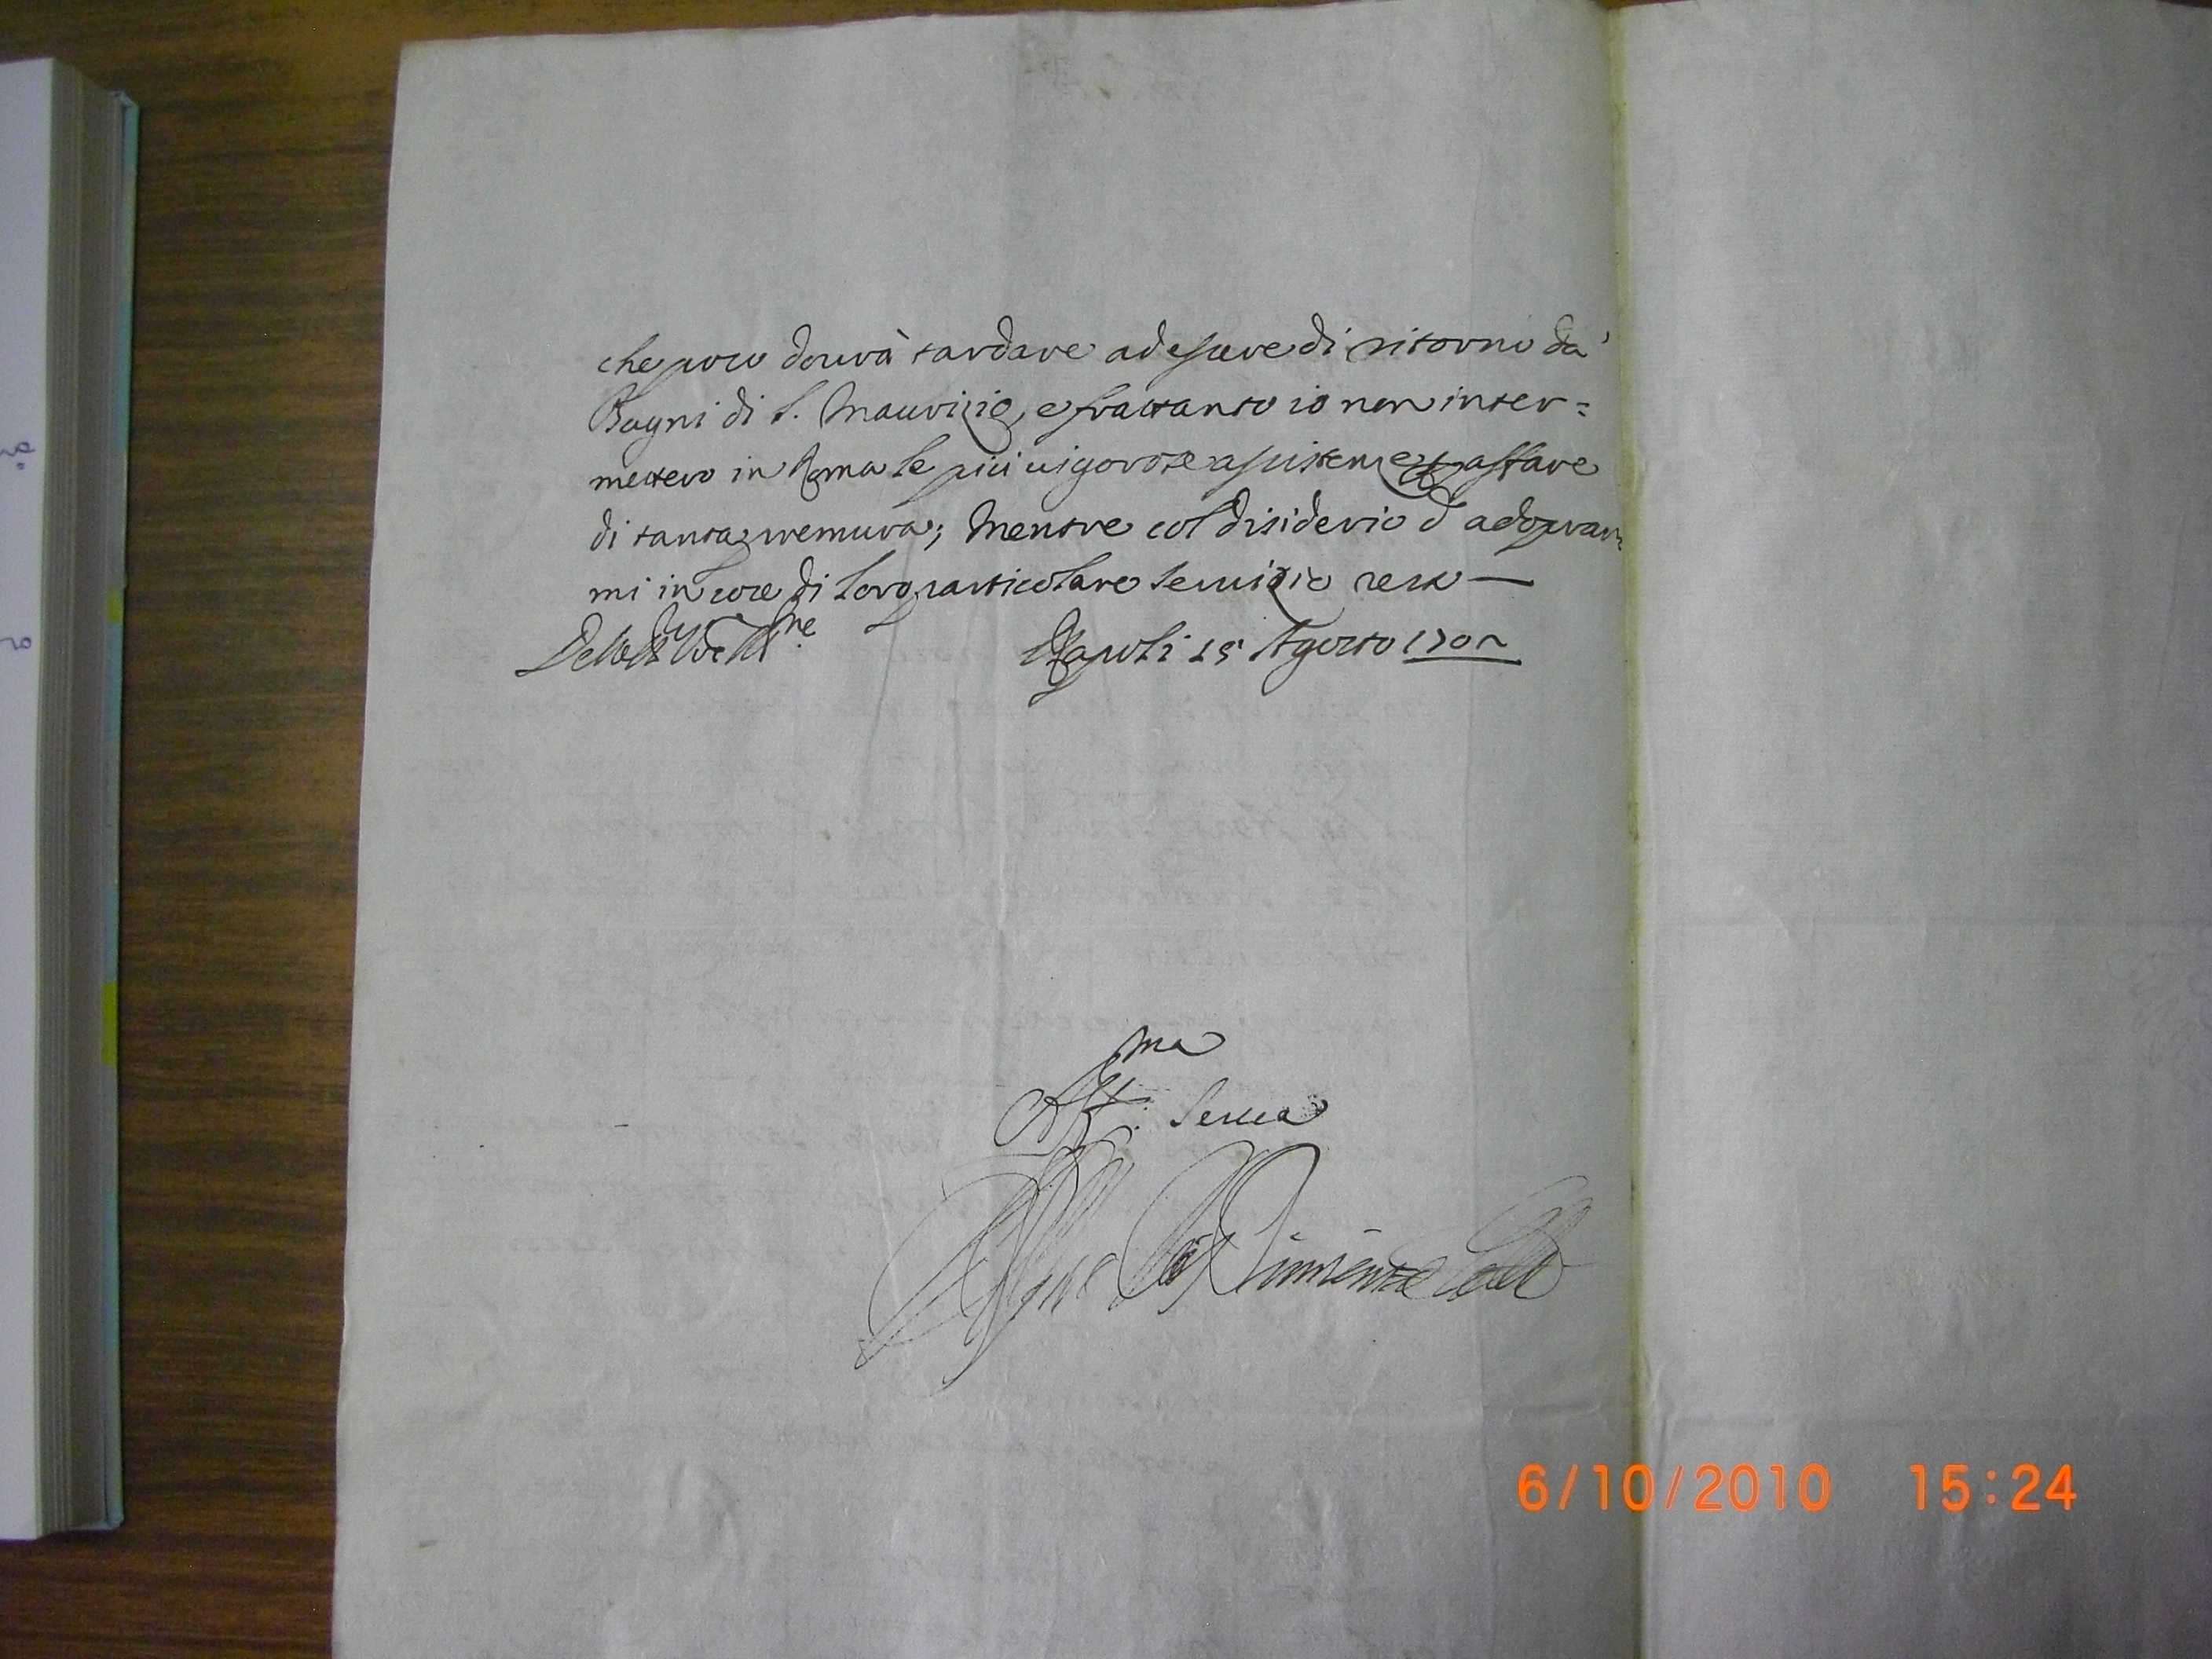 che poco dourà tardare ad essere di ritorno da'
Bagni di S. Maurizio, e frattanto io non inter=
metterò in Roma le più uigorose assistenze p affare
di tanta premura; Mentre col disiderio d' adoprar
mi in cose di loro particolare seruizio resto —
Napoli 15 Agosto 170
ma
Aff: Serua
6/10/2010 15:24